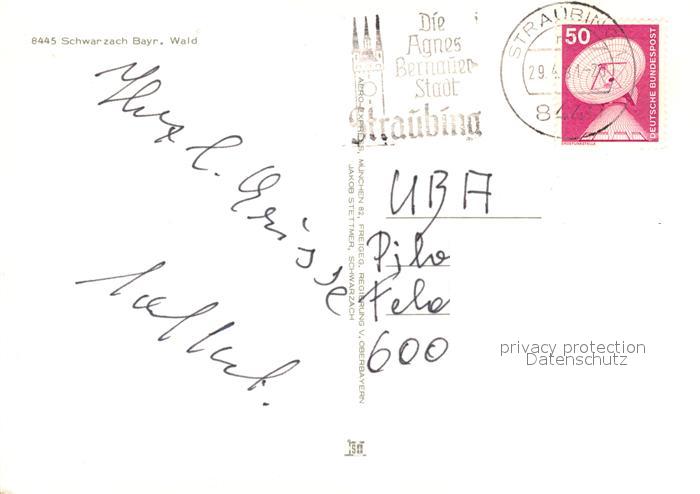 8445 Schwarzach Bayr. Wald
Die
Agnes
Bernauer
Stadt
Straubing
STRAUBING
29.4.
844
50
DEUTSCHE BUNDESPOST
ERDEFUNKSTELLE
AERO-EXPRESS, MÜNCHEN 82, FREIGEG. REGIERUNG V. OBERBAYERN
JAKOB STETTMER, SCHWARZACH
Herzl. Grüsse
UBA
600
privacy protection
Datenschutz